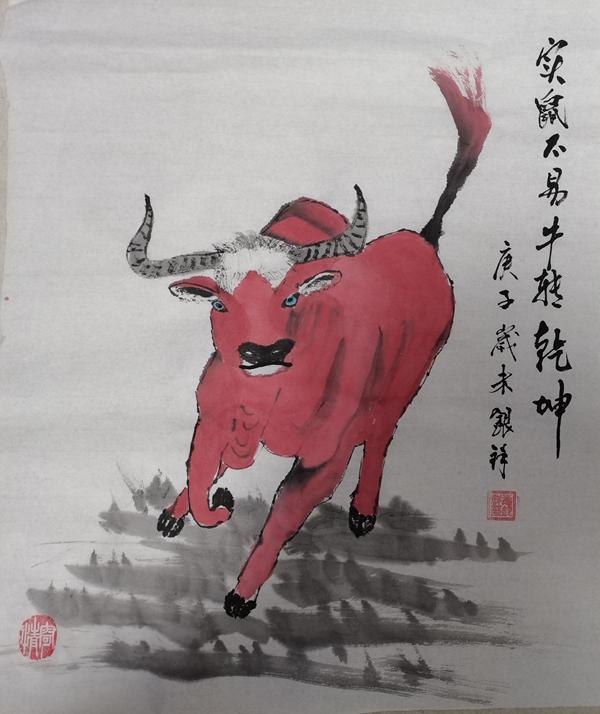 实鼠不易牛转乾坤
庚子岁末银祥